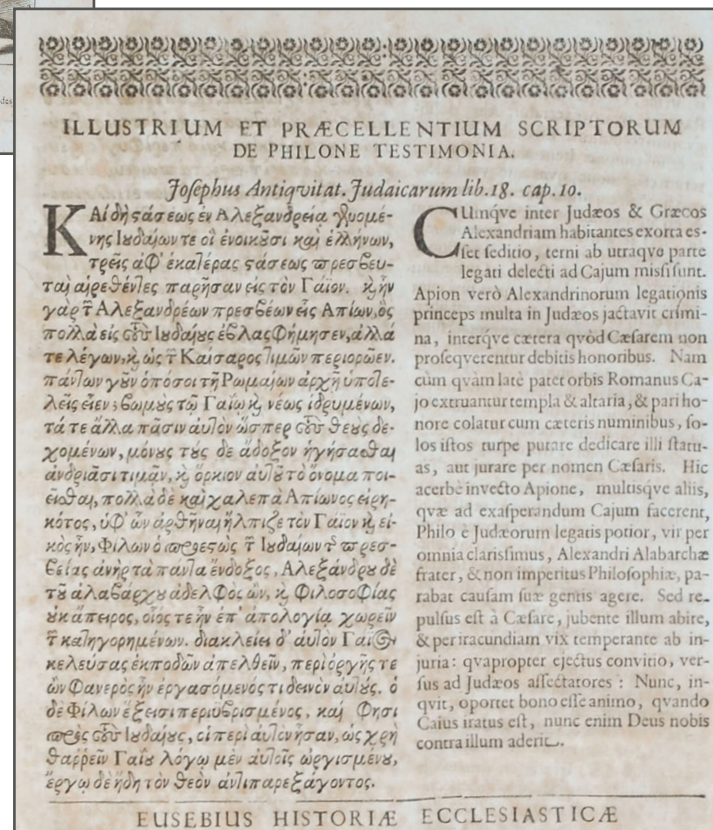 des
ILLUSTRIUM ET PRÆCELLENTIUM SCRIPTORUM
DE PHILONE TESTIMONIA.
Joſephus Antiqvitat. Judaicarum lib. 18. cap. 10.
ΚΑὶ δὴ στάσεως ἐν Ἀλεξανδρείᾳ γενομέ-
νης Ἰουδαίων τε οἳ ἐνοικοῦσι καὶ ἑλλήνων,
τρεῖς ἀφ' ἑκατέρας στάσεως πρεσβευ-
ταὶ αἱρεθέντες παρῆσαν εἰς τὸν Γάϊον. καὶ ἦν
γὰρ τῶν Ἀλεξανδρέων πρεσβέων εἷς Ἀπίων, ὃς
πολλὰ εἰς τοὺς Ἰουδαίους ἐβλασφήμησεν, ἄλλά
τε λέγων, καὶ ὡς τῶν Καίσαρος τιμῶν περιορῶεν.
πάντων γοῦν ὁπόσοι τῇ Ρωμαίων ἀρχῇ ὑποτε-
λεῖς εἶεν βωμοὺς τῷ Γαίῳ καὶ νέως ἱδρυμένων,
τά τε ἄλλα πᾶσιν αὐτὸν ὥσπερ τοὺς θεοὺς δε-
χομένων, μόνους τούς δε ἄδοξον ἡγήσασθαι
ἀνδριᾶσι τιμᾶν, καὶ ὅρκιον αὐτοῦ τὸ ὄνομα ποι-
εῖσθαι, πολλὰ δὲ καὶ χαλεπὰ Ἀπίωνος εἰρη-
κότος, ὑφ' ὧν ἀρθῆναι ἤλπιζε τὸν Γάϊον καὶ εἰ-
κὸς ἦν, Φίλων ὁ προεστὼς τῶν Ἰουδαίων τῆς πρεσ-
βείας ἀνὴρ τὰ πάντα ἔνδοξος, Ἀλεξάνδρου δὲ
τοῦ ἀλαβάρχου ἀδελφὸς ὢν, καὶ φιλοσοφίας
οὐκ ἄπειρος, οἷός τε ἦν ἐπ' ἀπολογίᾳ χωρεῖν
τῶν κατηγορημένων. διακλείει δ' αὐτὸν Γάϊος
κελεύσας ἐκποδὼν ἀπελθεῖν, περὶ ὀργῆς τε
ὢν φανερὸς ἦν ἐργασόμενός τι δεινὸν αὐτούς. ὁ
δὲ Φίλων ἔξεισι περιυβρισμένος, καὶ φησὶ
πρὸς τοὺς Ἰουδαίους, οἳ περὶ αὐτὸν ἦσαν, ὡς χρὴ
θαῤῥεῖν Γαΐου λόγῳ μὲν αὐτοῖς ὠργισμένου,
ἔργῳ δὲ ἤδη τὸν θεὸν ἀντιπαρεξάγοντος.
CUmqve inter Judæos & Græcos
Alexandriam habitantes exorta eſ-
ſet ſeditio, terni ab utraqve parte
legati delecti ad Cajum miſſi ſunt.
Apion verò Alexandrinorum legationis
princeps multa in Judæos jactavit crimi-
na, interqve cætera qvòd Cæſarem non
proſeqverentur debitis honoribus. Nam
cùm qvàm latè patet orbis Romanus Ca-
jo extruantur templa & altaria, & pari ho-
nore colatur cum cæteris numinibus, ſo-
los iſtos turpe putare dedicare illi ſtatu-
as, aut jurare per nomen Cæſaris. Hic
acerbè invecto Apione, multisqve aliis,
qvæ ad exaſperandum Cajum facerent,
Philo è Judæorum legatis potior, vir per
omnia clariſſimus, Alexandri Alabarchæ
frater, & non imperitus Philoſophiæ, pa-
rabat cauſam ſuæ gentis agere. Sed re-
pulſus eſt à Cæſare, jubente illum abire,
& per iracundiam vix temperante ab in-
juria: qvapropter ejectus convitio, ver-
ſus ad Judæos aſſectatores: Nunc, in-
qvit, oportet bono eſſe animo, qvando
Caius iratus eſt, nunc enim Deus nobis
contra illum aderit.
EUSEBIUS HISTORIÆ ECCLESIASTICÆ